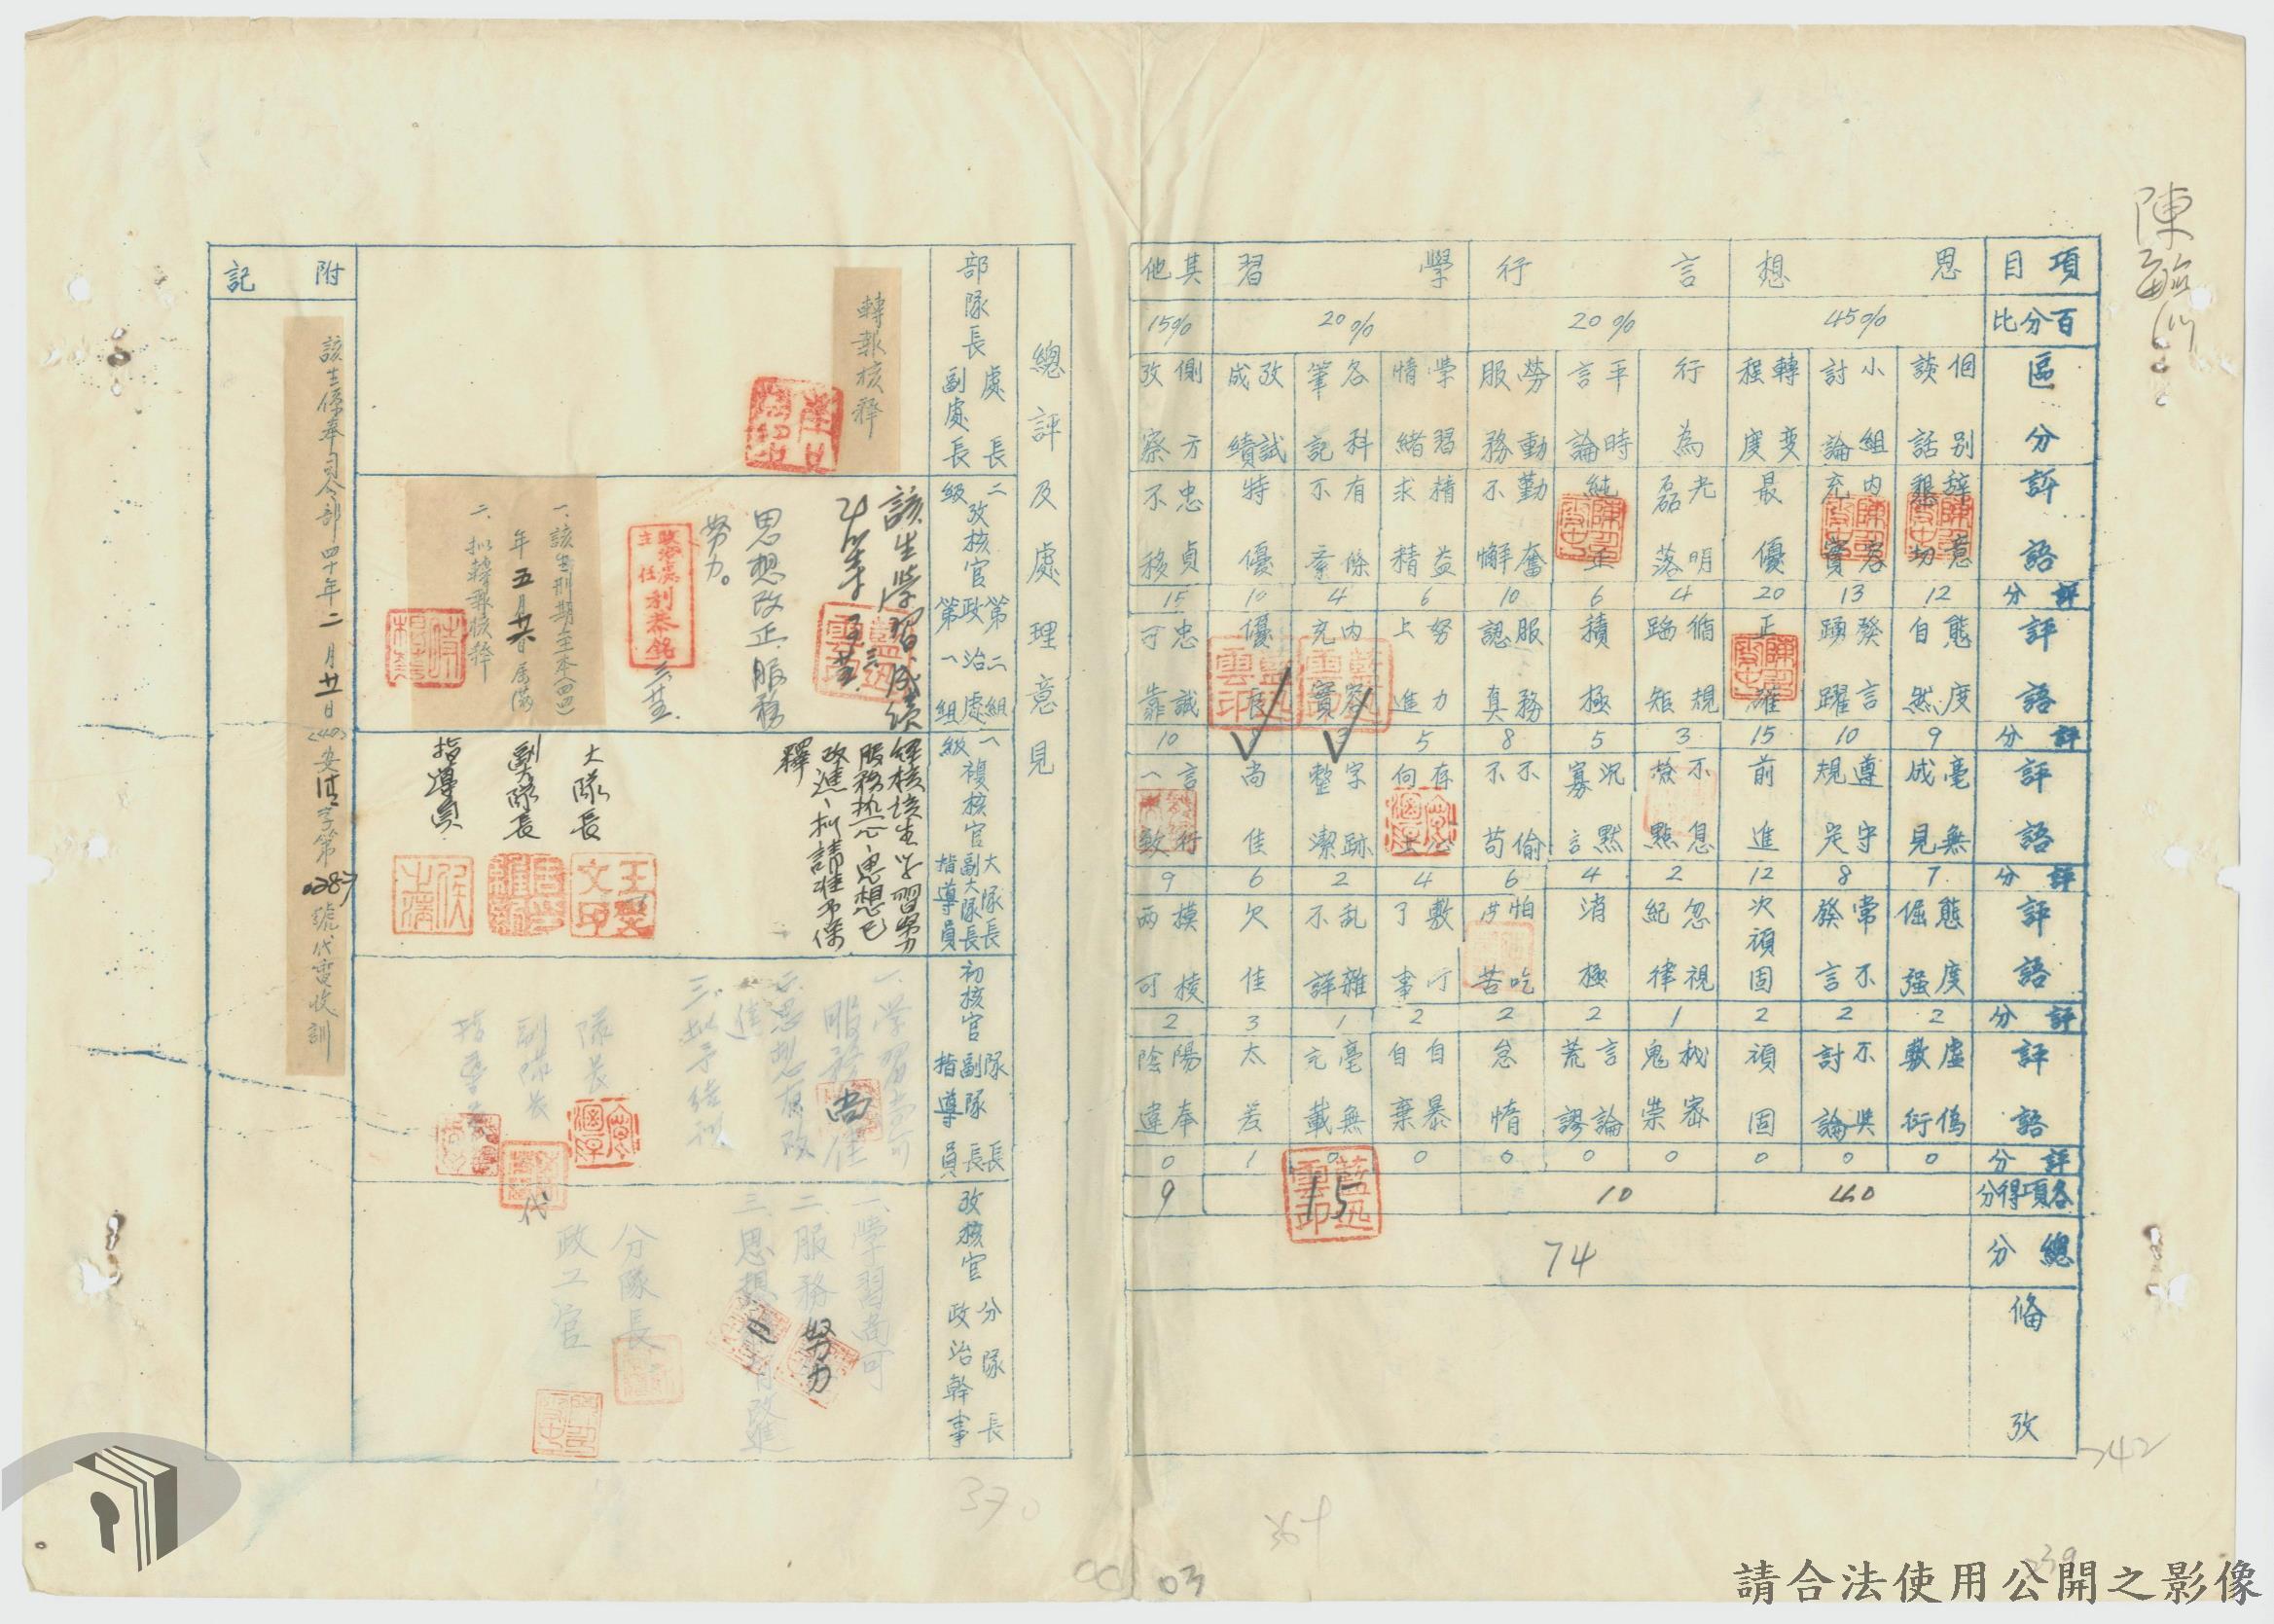 陳
項目
思想
言行
學習
其他
百分比
45%
20%
20%
15%
區分
個別談話
小組討論
轉變程度
行為
平時言論
勞動服務
學習情緒
各科筆記
考試成績
側方考察
評語
辭意懇切
內容充實
最優
光明磊落
純正
勤奮不懈
精益求精
有條不紊
特優
忠貞不移
評分
12
13
20
4
6
10
6
4
10
15
評語
態度自然
發言踴躍
正確
循規蹈矩
積極
服務認真
努力上進
內容充實
優良
忠誠可靠
評分
9
10
15
3
5
8
5
10
評語
毫無成見
遵守規定
前進
不息
沉默寡言
不偷不苟
存心向上
字跡整潔
尚佳
言行一致
評分
7
8
12
2
4
6
4
2
6
9
評語
態度倔强
常不發言
次頑固
忽視紀律
消極
怕吃苦
敷衍了事
乱雜不詳
欠佳
模棱兩可
評分
2
2
2
1
2
2
2
1
3
2
評語
虛偽敷衍
不與討論
頑固
鬼祟
言論荒謬
怠惰
自暴自棄
毫無充載
太差
陽奉陰違
評分
0
0
0
0
0
0
0
0
1
0
各項得分
40
10
15
9
總分
74
備考
總評及處理意見
部隊長
處長
副處長
轉報核釋
二級攷核官
政治處
第二組
第一組
該生學習成績
思想改正服務
努力。
政治處主任
一、該生刑期至本(四四)
年五月廿六日屆滿
二、擬轉報核釋
一級複核官
大隊長
副大隊長
指導員
經核該生學習努力
服務热心、思想已
改進、擬請准予保
釋
大隊長
副大隊長
指導員
初核官
隊長
副隊長
指導員
一、學習尚可
服務尚佳
二、思想有改
進
隊長
副隊長
代
攷核官
分隊長
政治幹事
一、學習尚可
二、服務努力
三、思想已有改進
分隊長
政工官
附記
該生係奉司令部四十年二月廿一日(40)安潔字第0287號代電收訓
742
370
03
請合法使用公開之影像